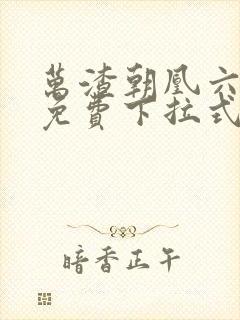 萬渣朝凰六
免費下拉式
暗香正午